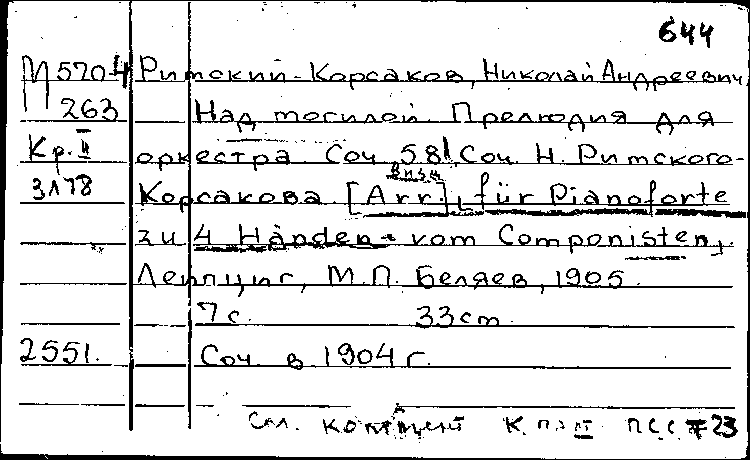 644
М5704 Римский-Корсаков, Николай Андреевич
263 Над могилой. Прелюдия для
Кр. II оркестра. Соч. 58. Соч. Н. Римского-
3178 Корсакова. [Arr.], für Pianoforte
zu 4 Händen - vom Componisten.
Лейпциг, М.П. Беляев, 1905.
7 с. 33 cm.
2551. Соч. в 1904 г.
См. коммент К ПСС т 23